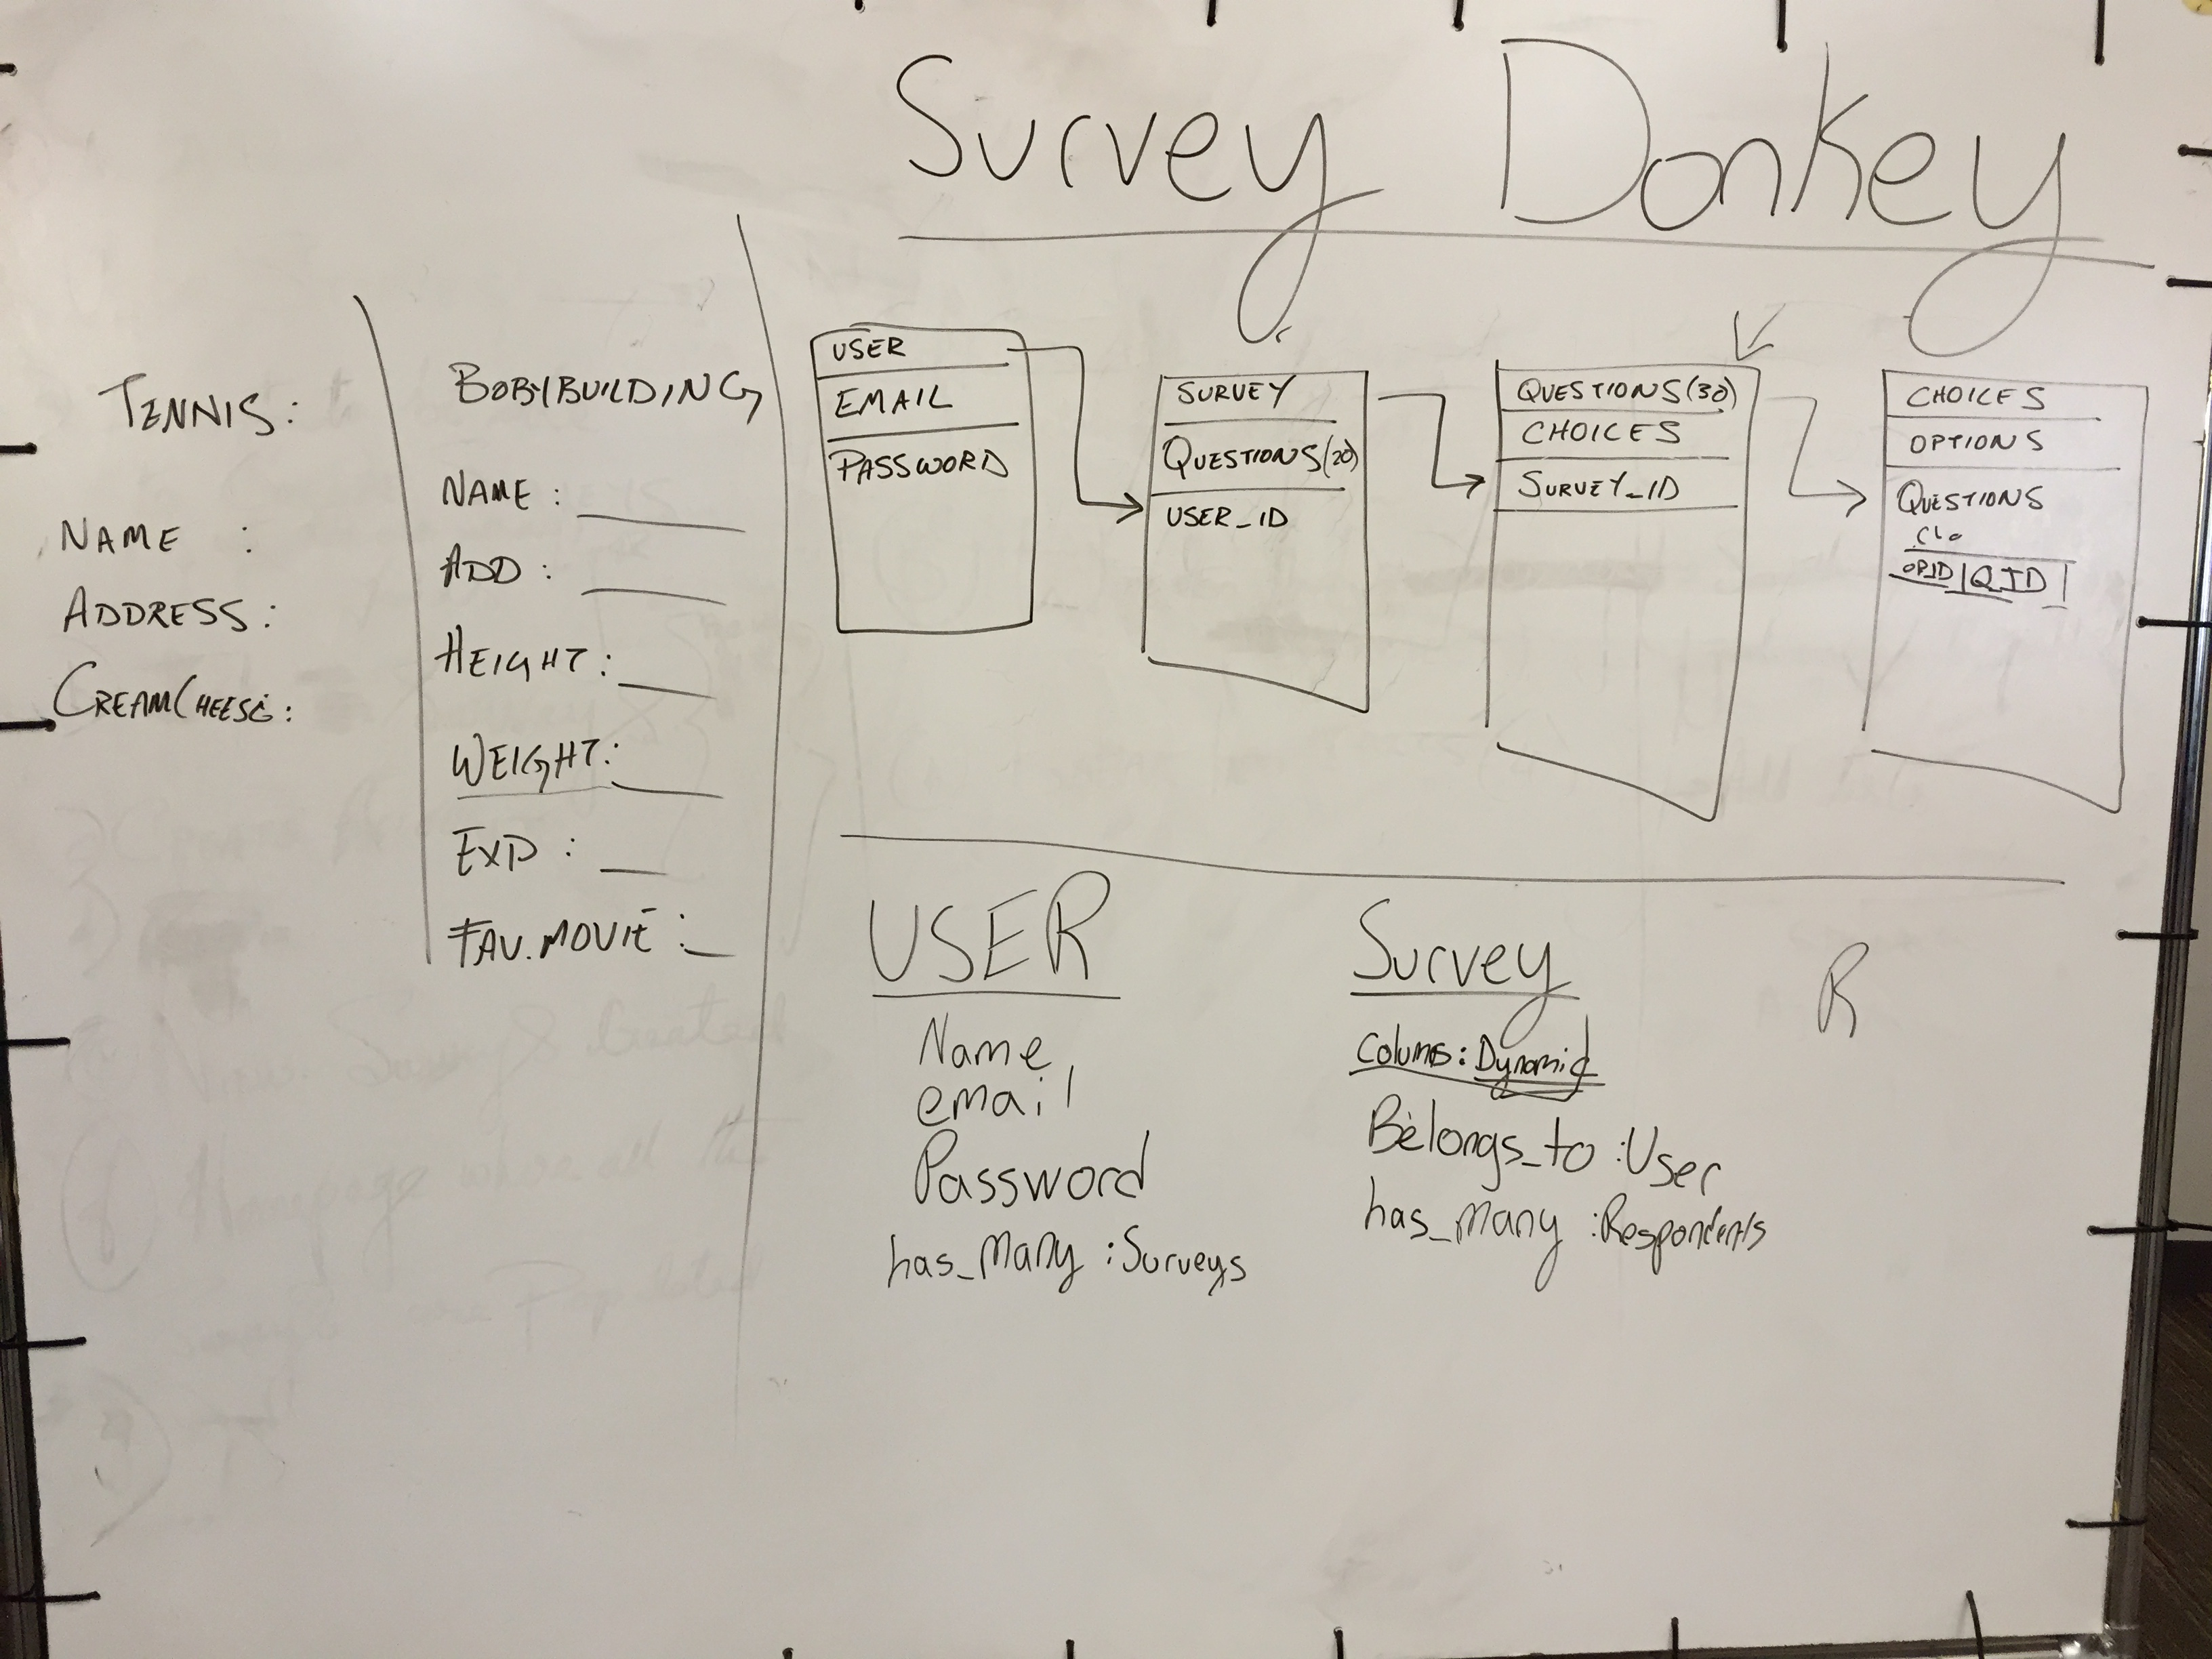 Survey Donkey
TENNIS:
NAME :
ADDRESS:
CREAMCHEESE:
BOBYBUILDING
NAME :
ADD :
HEIGHT:
WEIGHT:
EXP :
FAV. MOVIE :
USER
EMAIL
PASSWORD
SURVEY
QUESTIONS(20)
USER_ID
QUESTIONS(30)
CHOICES
SURVEY_ID
CHOICES
OPTIONS
QUESTIONS
OPID|QID|
USER
Name
email
Password
has_many :Surveys
Survey
Colums: Dynamic
Belongs_to :User
has_many :Respondents
R